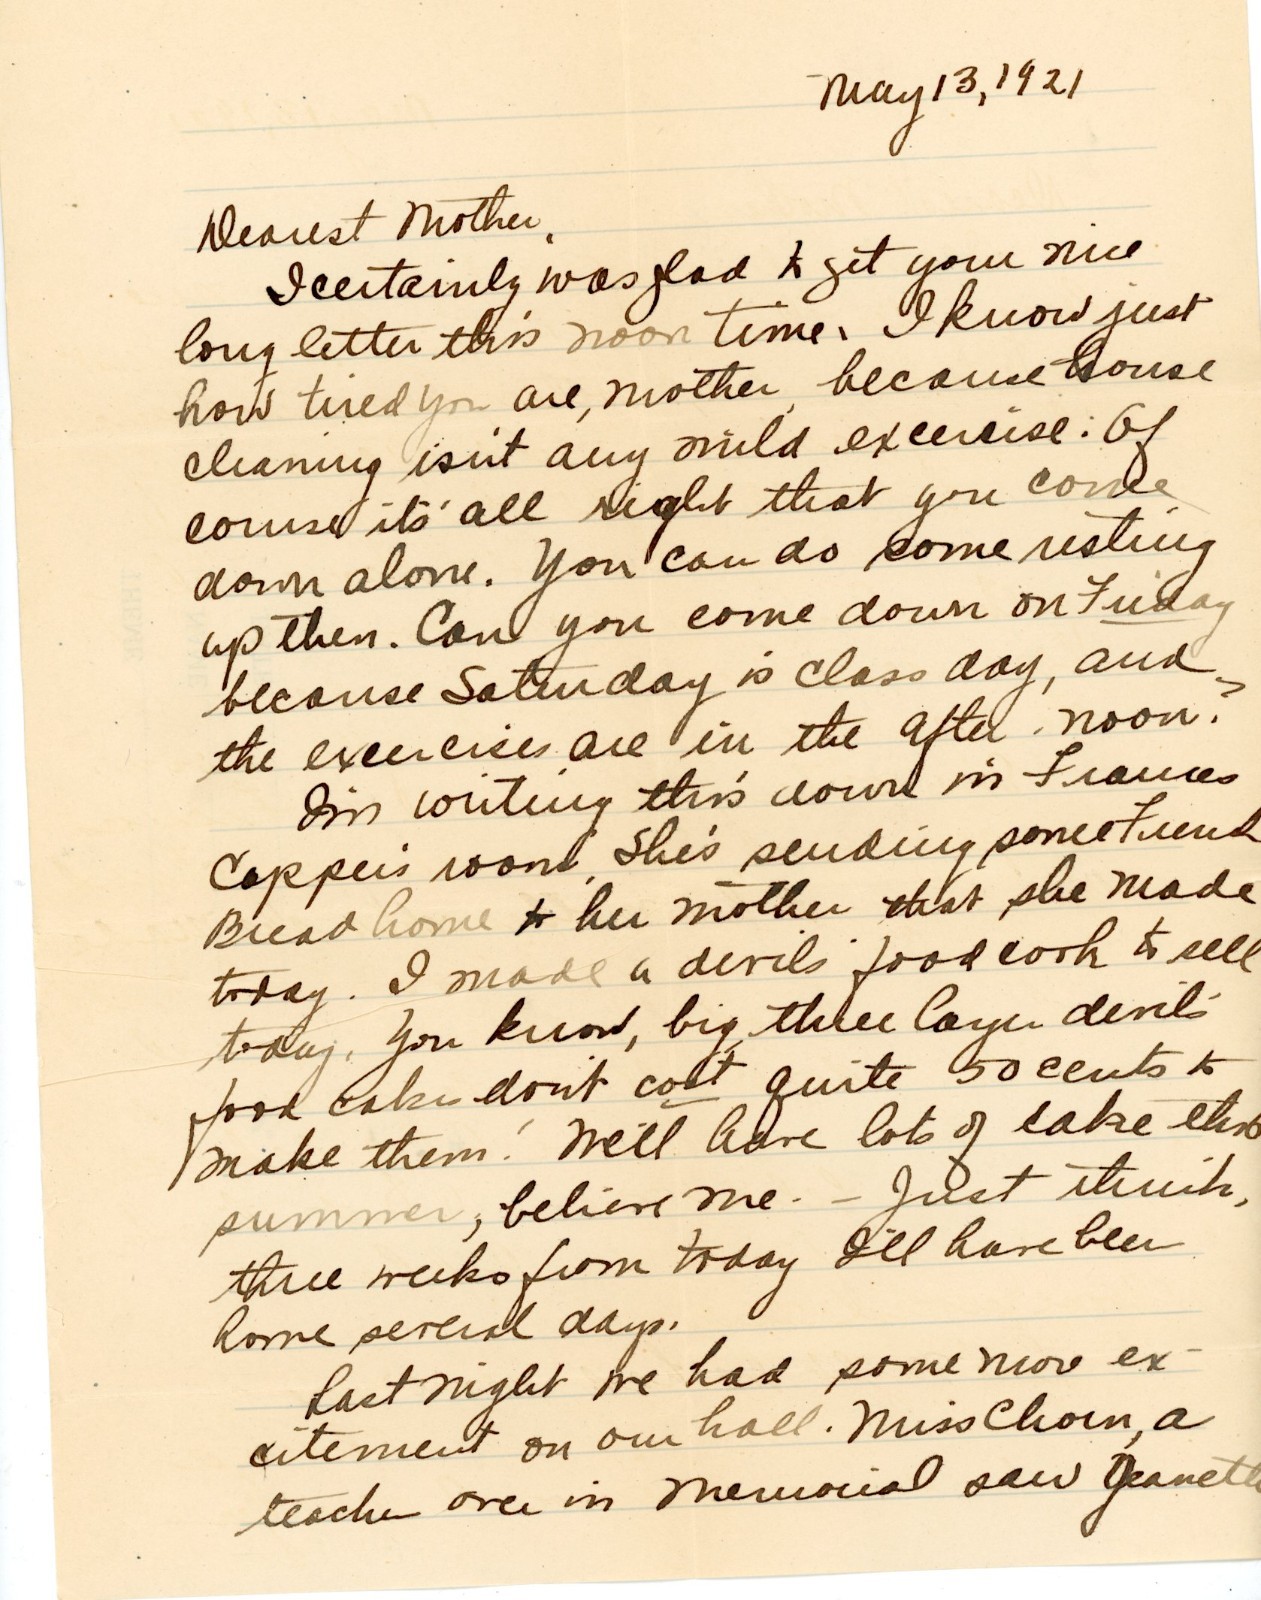 May 13, 1921
Dearest Mother,
I certainly was glad to get your nice
long letter this noon time. I know just
how tired you are, Mother, because house
cleaning isn't any mild excercise. Of
course it's all right that you come
down alone. You can do some resting
up then. Can you come down on Friday
because Saturday is class day, and
the excercises are in the after-noon?
I'm writing this down in Frances
Copper's room. She's sending some Friend
Bread home to her mother that she made
today. I made a devil's food cook to sell
today. You know, big, three layer devil's
food cakes don't cost quite 50 cents to
make them! We'll have lots of cake this
summer, believe me. - Just think,
three weeks from today I'll have been
home several days.
Last night we had some more ex-
citement on our hall. Miss Chorn, a
teacher over in Memorial saw Jeanette